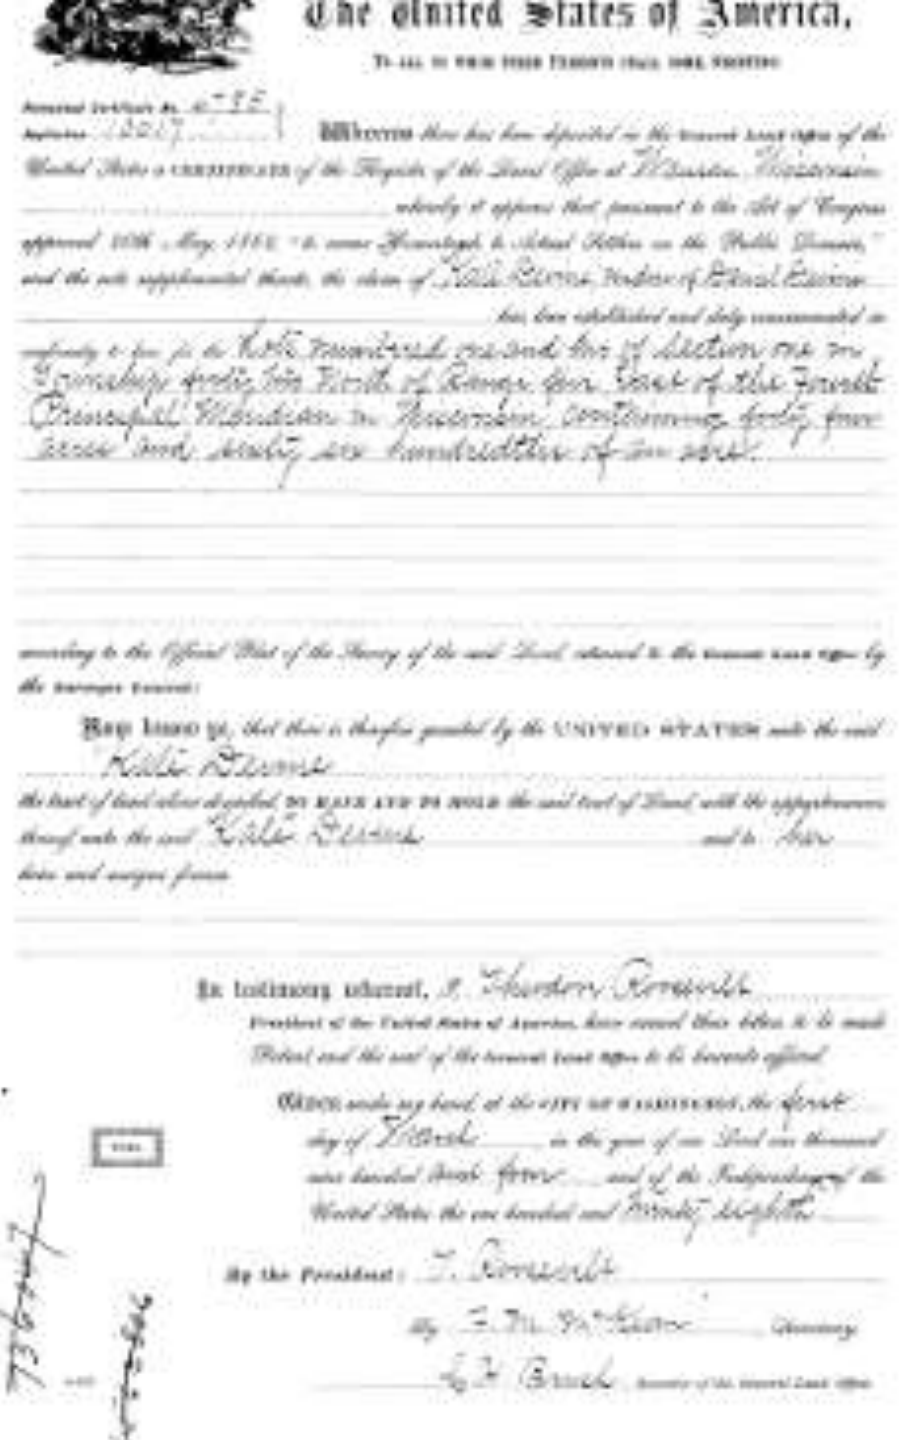 The United States of America,
TO ALL TO WHOM THESE PRESENTS SHALL COME, GREETING:
Homestead Certificate No.
Application
Whereas there has been deposited in the General Land Office of the
United States a CERTIFICATE of the Register of the Land Office at Wausau, Wisconsin
whereby it appears that, pursuant to the Act of Congress
approved 20th May, 1862, "To secure Homesteads to Actual Settlers on the Public Domain,"
and the acts supplemental thereto, the claim of widow of
has been established and duly consummated in
conformity to law for the Lots numbered one and two of Section one in
Township forty two North of Range East of the Fourth
Principal Meridian in Wisconsin containing forty four
acres and sixty six hundredths of an acre.
according to the Official Plat of the Survey of the said Land, returned to the General Land Office by
the Surveyor General:
Now know ye, that there is therefore granted by the UNITED STATES unto the said
the tract of Land above described, TO HAVE AND TO HOLD the said tract of Land, with the appurtenances
thereof, unto the said and to her
heirs and assigns forever.
In testimony whereof, I, Theodore Roosevelt
President of the United States of America, have caused these letters to be made
Patent, and the seal of the General Land Office to be hereunto affixed.
GIVEN under my hand, at the CITY OF WASHINGTON, the first
day of March in the year of our Lord one thousand
nine hundred and four and of the Independence of the
United States the one hundred and twenty eighth
By the President: T. Roosevelt
By F. M. McKean Secretary.
Recorder of the General Land Office.
SEAL